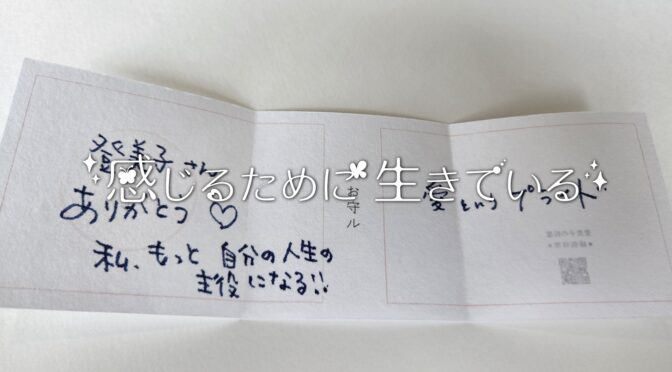 感じるために生きている
登美子さん
ありがとう♡
私、もっと自分の人生の
主役になる!!
お守ル
愛という